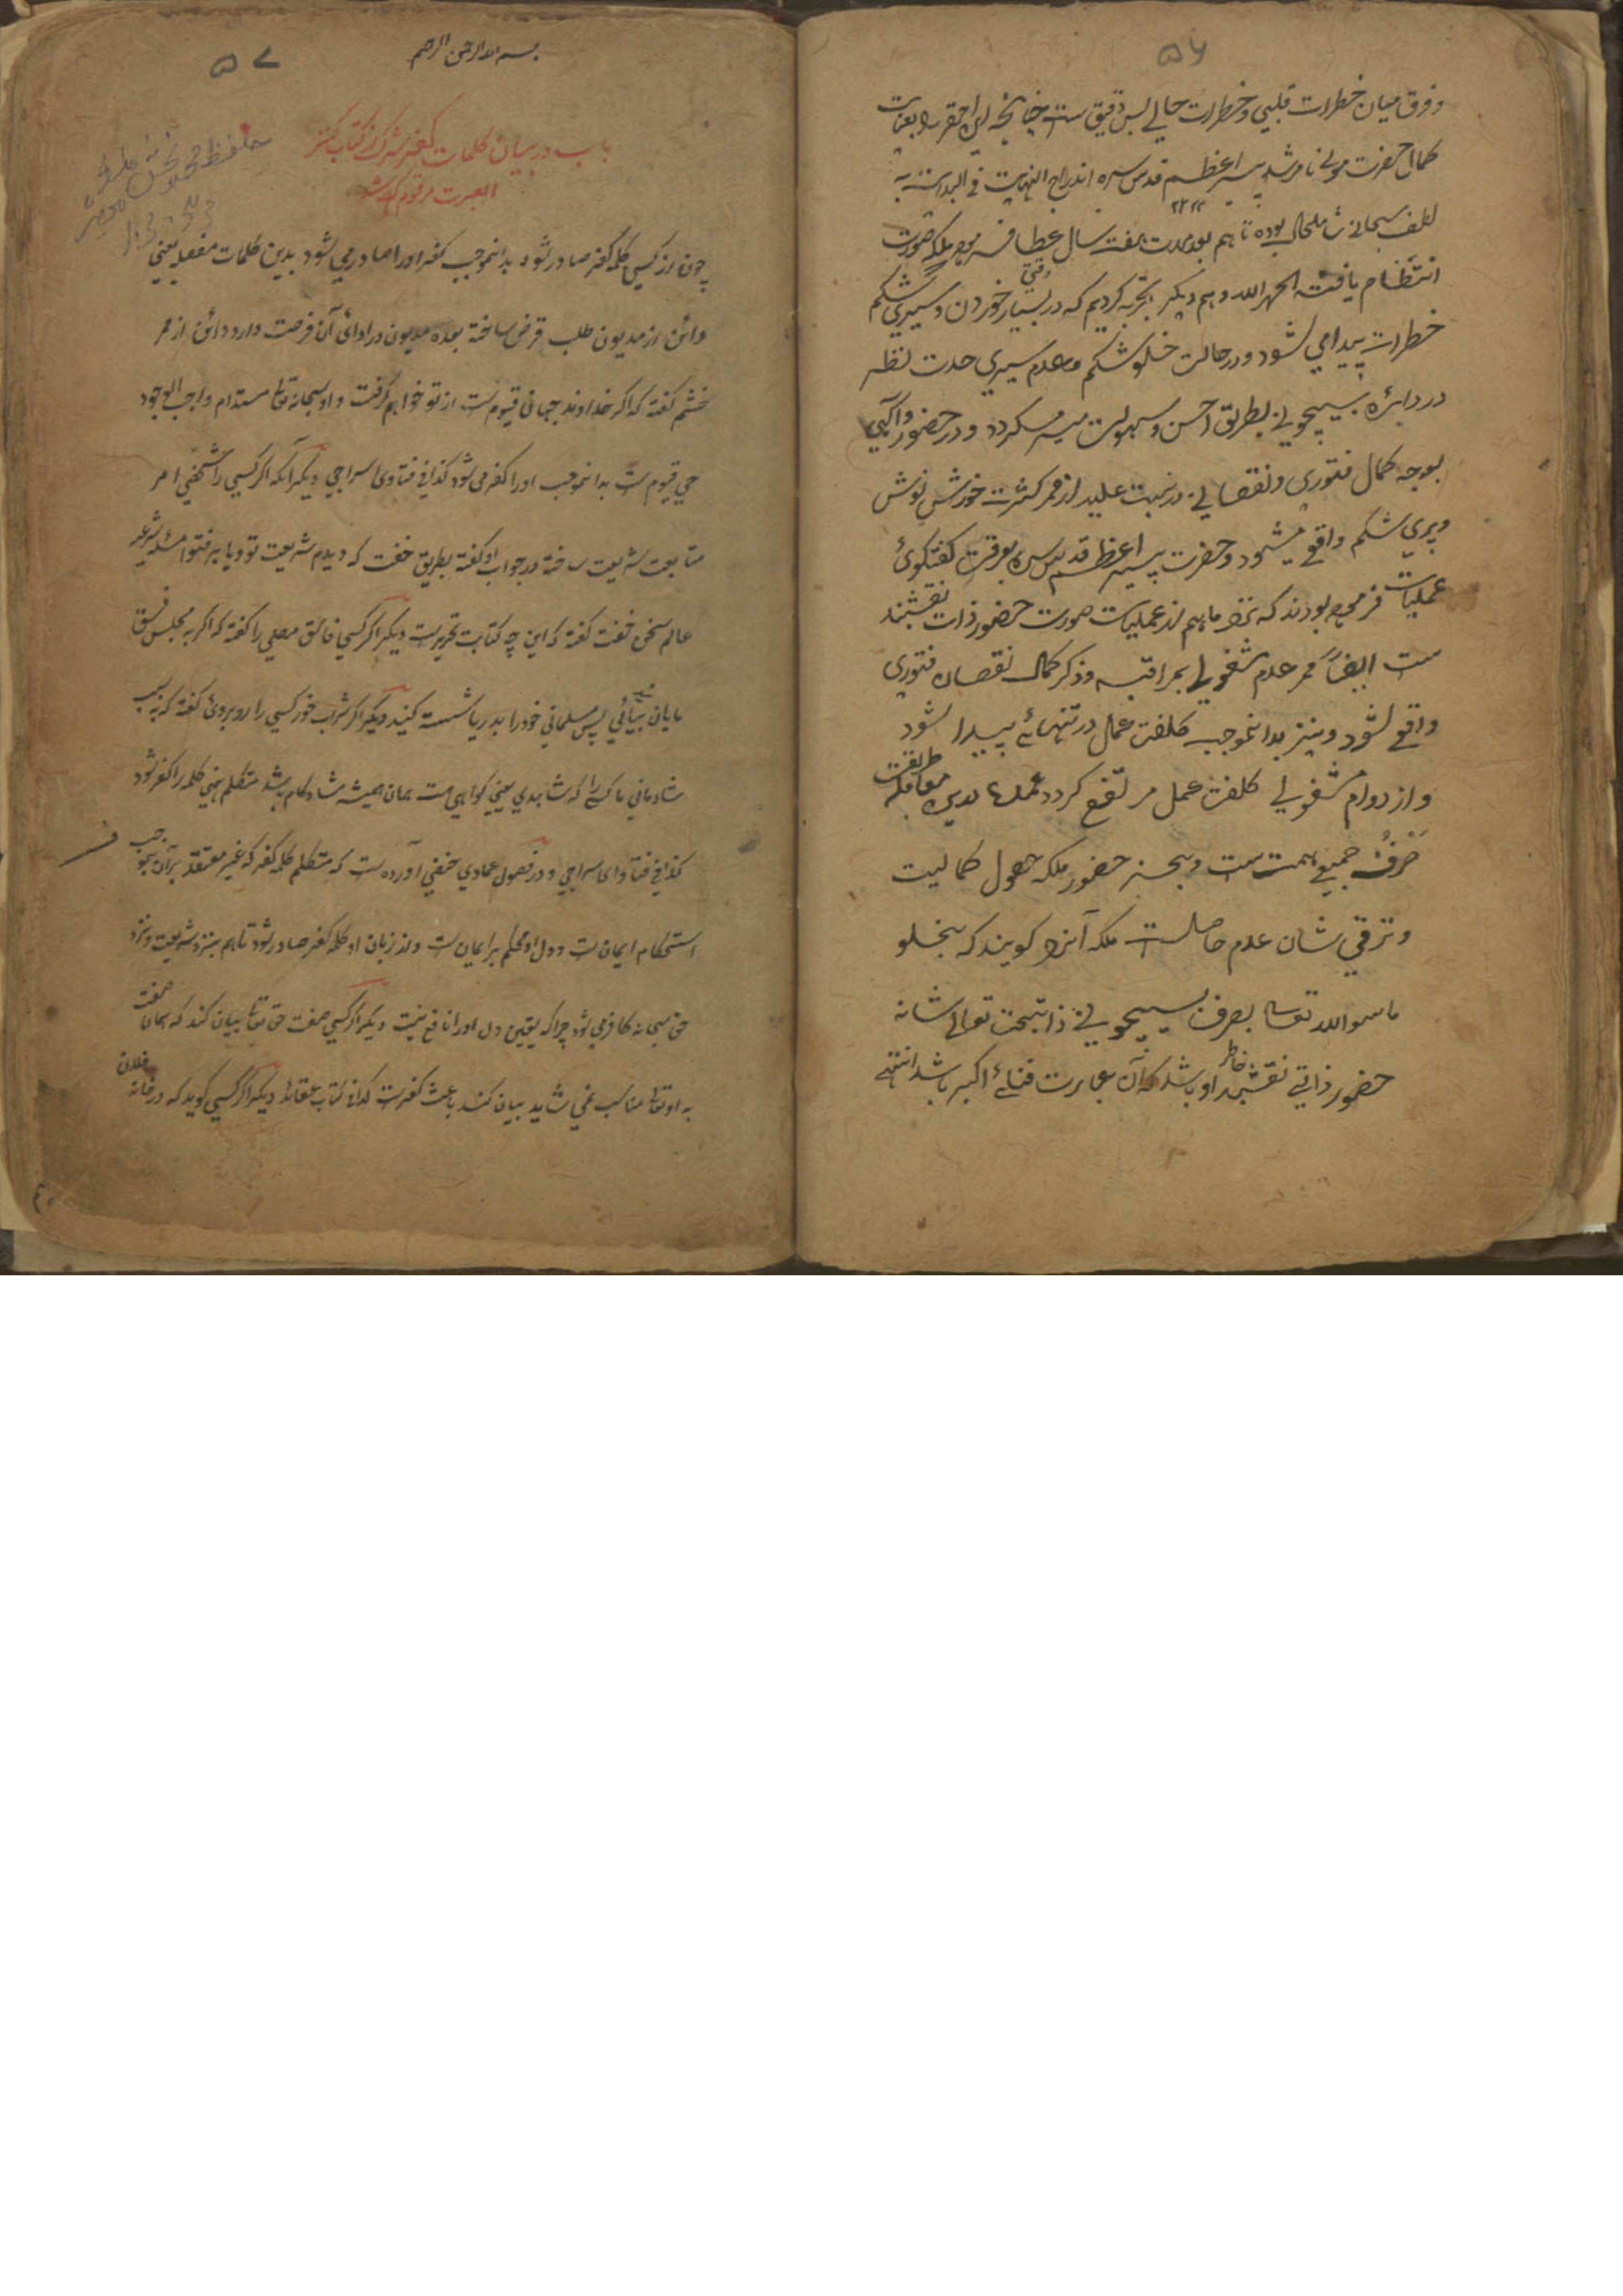 ۵۶
و فرق میان خطرات قلبی و خطرات حالے بس دقیق ست چنانچه این احقر را بعنایت
کمال حضرت مولانا مرشد پیر اعظم قدس سره اندراج النهایت فی البدایت به
لطف سبحانی شاملحال بوده تا هم بعد مدت هفت سال عطا فرموده ملکه صورت
انتظام یافت الحمد لله و هم دیگر تجربه کردیم که در وقتی بسیار خوردن و سیری شکم
خطرات پیدا می شود و در حالت خلو شکم و عدم سیری حدت نظر
در دایره بیچونی بطریق احسن و سهولت میسر میگردد و در حضور و آگهی
بوجه کمال فتوری و نقصانی در نسبت علیه از ممر کثرت خورش نوش
و پری شکم واقع میشود و حضرت پیر اعظم قدس سره بوقت گفتگوئ
عملیات فرموده بودند که نزد ما هم از عملیات صورت حضور ذات نقشبند
ست ایضاً ممر عدم مشغولی بمراقبه و ذکر کمال نقصان فتوری
واقع شود و نیز بدانموجب کلفت عمل در تنهائے پیدا شود
و از دوام مشغولی کلفت عمل مرتفع گردد عملها بدین معامله طریقت
صرف جمیع همت ست و بجز حضور ملکه حصول کمالیت
و ترقی شان عدم حاصلست ملکه آنرا گویند که بخلو
ماسوا الله تعالی بصرف بیچونی ذات بحت تعالی شانه
حضور ذاتی نقشبند خاطر او باشد که آن عبارت فنائے اکبر باشد انتهی
۵۷
بسم الله الرحمن الرحیم
باب در بیان کلمات کفر شرک از کتاب کنز
العبرت مرقوم کرده شد
چون از کسی کلمه کفر صادر شود بدانموجب کفر او را صادر می شود بدین کلمات مفصله یعنی
دائن از مدیون طلب قرض ساخته بعده مدیون در ادائ آن فرصت دارد و دائن از ممر
خشم گفته که اگر خداوند جهانی قیوم ست از تو خواهم گرفت و او سبحانه تعالی مستدام واجب الوجود
حی قیوم ست بدانموجب او را کفر می شود کذا فی فتاوی سراجی دیگر آنکه اگر کسی را شخصی امر
متابعت شریعت ساخته در جواب او گفته بطریق خفت که دیدم شریعت تو و یا بر فتوا مسئله شرعی
عالم سخن خفت گفته که این چه کتابت تحریرست دیگر اگر کسی فاسق مصلی را گفته که اگر به مجلس فسق
مایان بیائی پس مسلمانی خود را بدریا شسته کنید دیگر اگر شراب خور کسی را روبروئ گفته که به سبب
شادمانی ما کسے را که شاهدی یعنی گواهی ست همان همیشه شادکام باشد متکلم چنین کلمه را کفر شود
کذا فی فتاوای سراجی و در فصول عمادی حنفی آورده ست که متکلم کلمه کفر که غیر معتقد بر آن بموجب
استحکام ایمان ست و دل او محکم بر ایمان ست و از زبان او کلمه کفر صادر شود تا هم بنزد شریعت و نزد
حق سبحانه کافر می شود چرا که یقین دل او را نافع نیست دیگر اگر کسی صفت حق تعالی بیان کند که همان صفت
به او تعالی مناسب نمی شاید بیان کند باعث کفرست کذا فی کتاب عقائد دیگر اگر کسی گوید که در خانه فلان